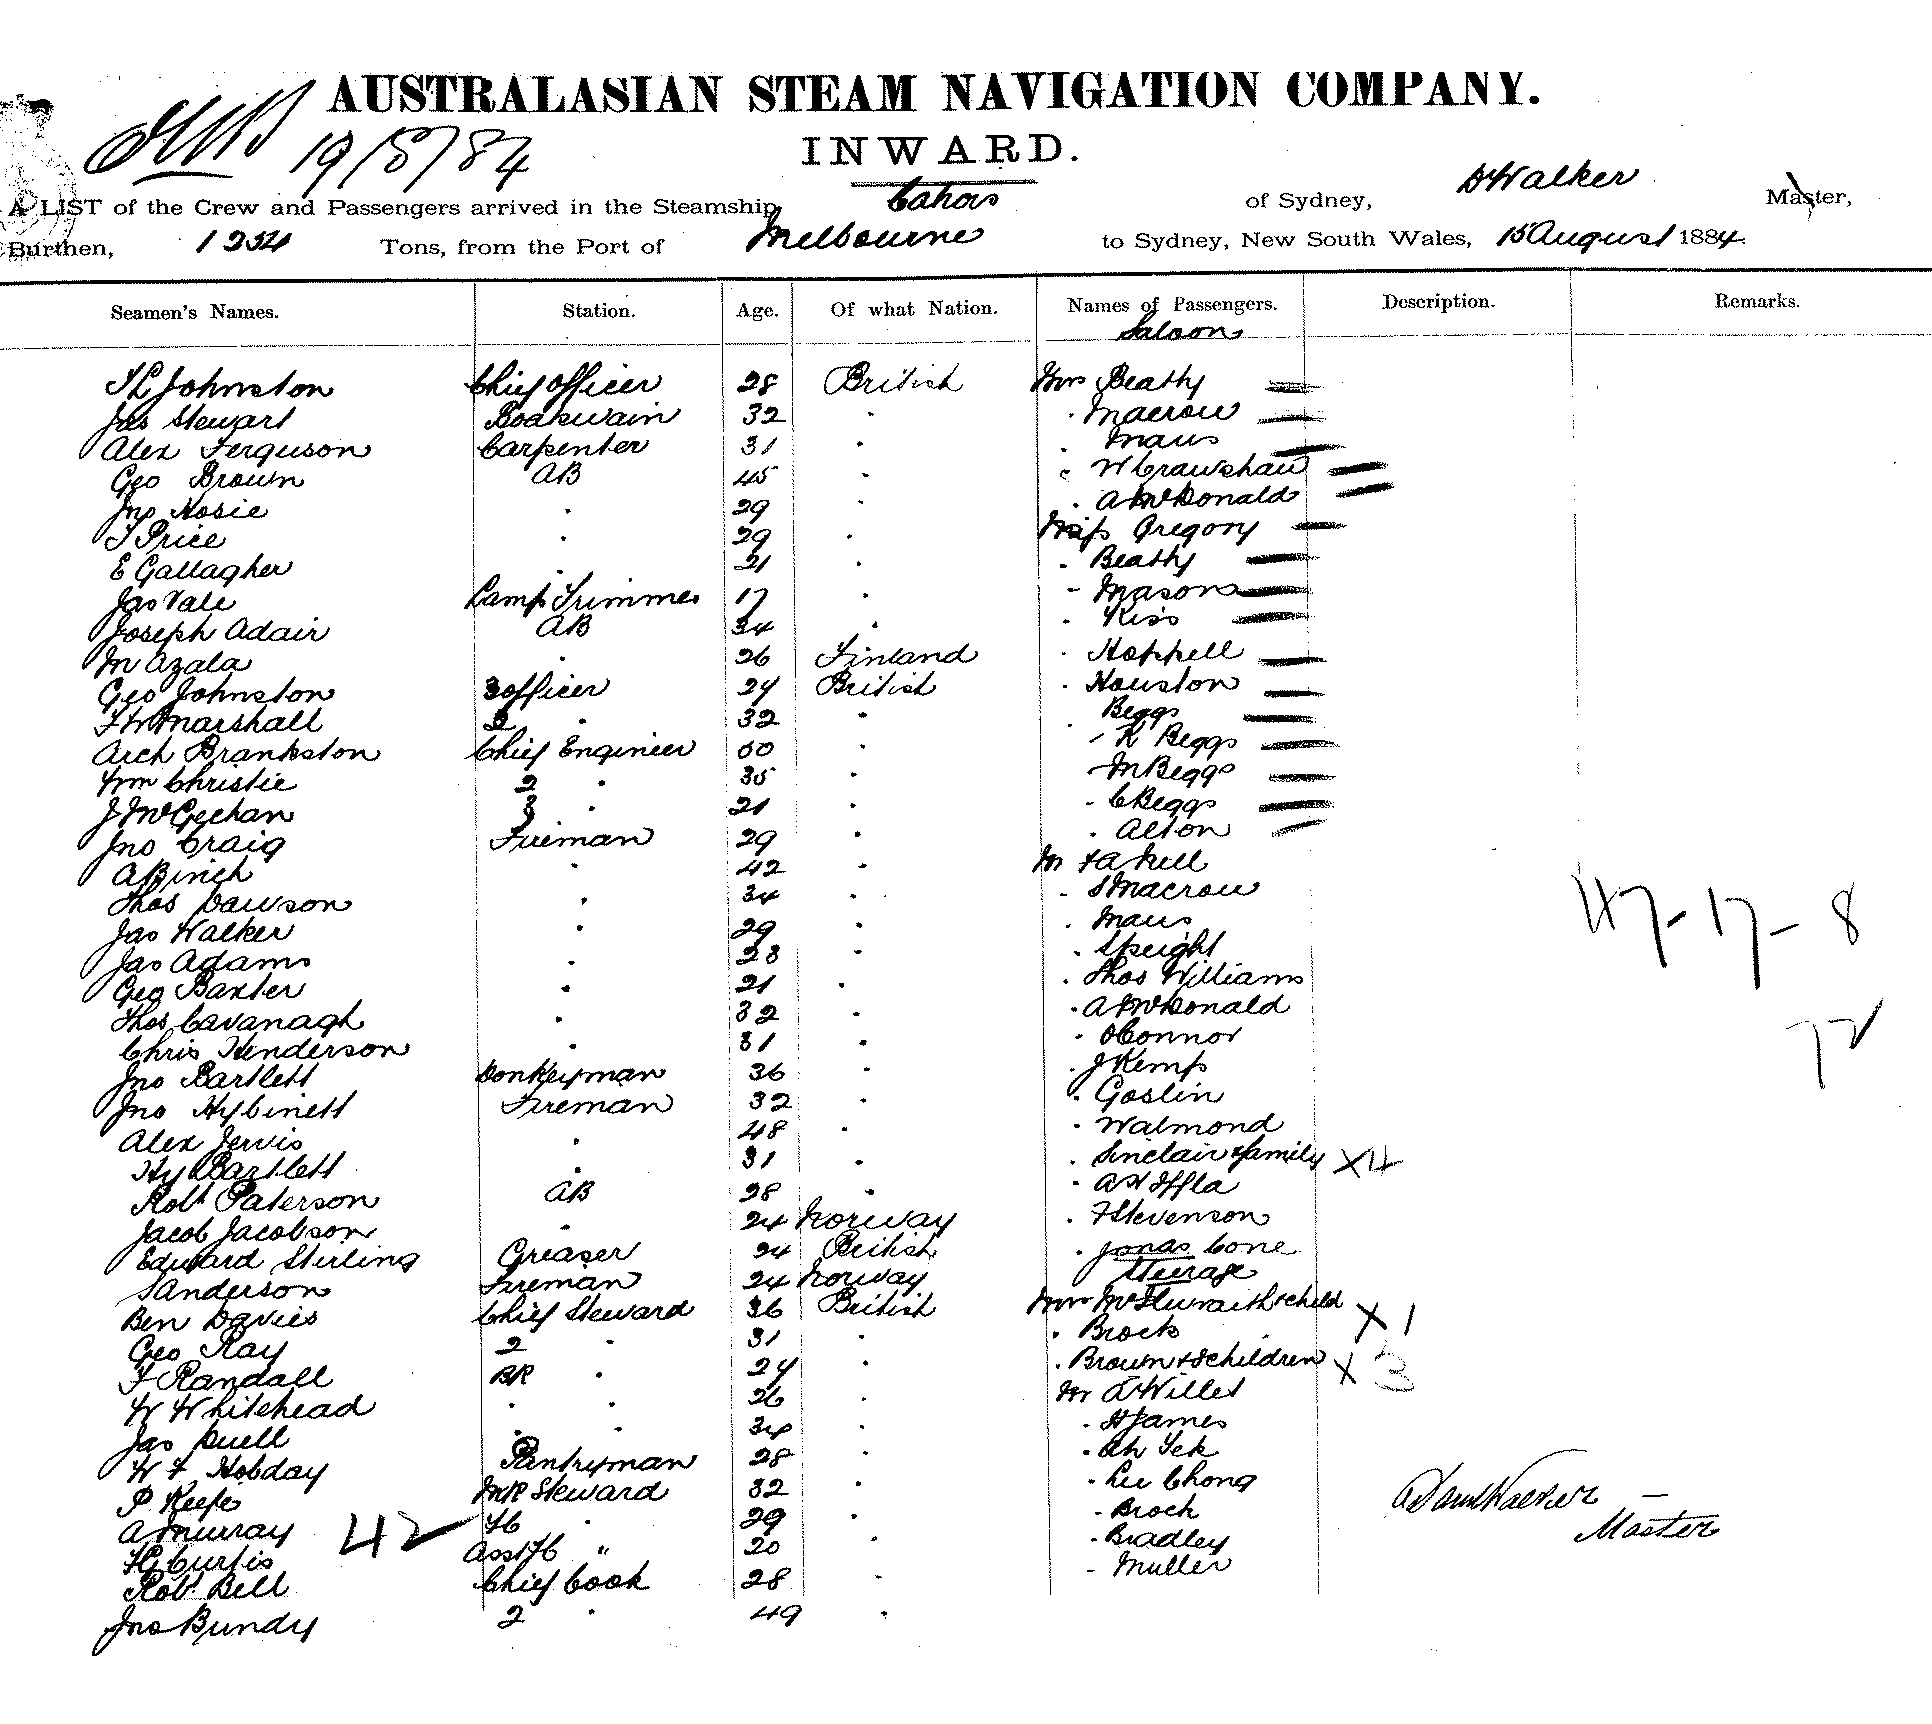 AUSTRALASIAN STEAM NAVIGATION COMPANY.
19/8/84
INWARD.
A LIST of the Crew and Passengers arrived in the Steamship Cahors of Sydney, A Walker Master,
Burthen, 1254 Tons, from the Port of Melbourne to Sydney, New South Wales, 15 August 1884.
Seamen's Names. Station. Age. Of what Nation. Names of Passengers. Description. Remarks.
Saloon
Johnston Chief Officer 28 British Mrs Beatty
Jas Stewart Boatswain 32 " Macrow
Alex Ferguson Carpenter 31 " Maus
Geo Brown AB 45 " W Crawshaw
Jno Hosie " 29 " A McDonald
T Price " 29 " Miss Gregory
E Gallagher " 21 " Beatty
Jas Vale Lamp Trimmer 17 " Mason
Joseph Adair AB 34 " Kiss
M Azala " 26 Finland " Hoppell
Geo Johnston 3 officer 24 British " Houston
Marshall 2 " 32 " Beggs
Arch Brankston Chief Engineer 50 " K Beggs
Wm Christie 2 " 35 " M Beggs
J McGeehan 3 " 21 " C Beggs
Jno Craig Fireman 29 " Alton
A Binch " 42 " Mr Hill
Thos Dawson " 34 " S Macrow
Jas Walker " 29 " Maus
Jas Adams " 28 " Speight 47-17-8
Geo Baxter " 21 " Thos Williams
Thos Cavanagh " 32 " A McDonald
Chris Henderson " 31 " OConnor 72
Jno Bartlett Donkeyman 36 " J Kemp
Jno Hybinett Fireman 32 " Goslin
Alex Jervis " 48 " Walmond
Hy Bartlett " 31 " Sinclair & family X4
Robt Paterson AB 28 " A H Iffla
Jacob Jacobson " 24 Norway " F Stevenson
Edward Stirling Greaser 24 British " Jonas Cone
Steerage
S Anderson Fireman 24 Norway
Ben Davies Chief Steward 36 British Mrs McIlwraith & child X1
Geo Ray 2 " 31 " Brock
F Randall BR " 24 " Brown & 3 children X3
W Whitehead " " 26 " Mr Willet
Jas Duell " " 34 " H James
W F Hobday Pantryman 28 " Ah Yek
P Keefe Steward 32 " Lee Chong
A Murray 42 " 29 " Brock
Curtis Asst " 20 " Bradley
Robt Bell Chief Cook 28 " Muller
Jno Bundy 2 " 49 "
Walker
Master